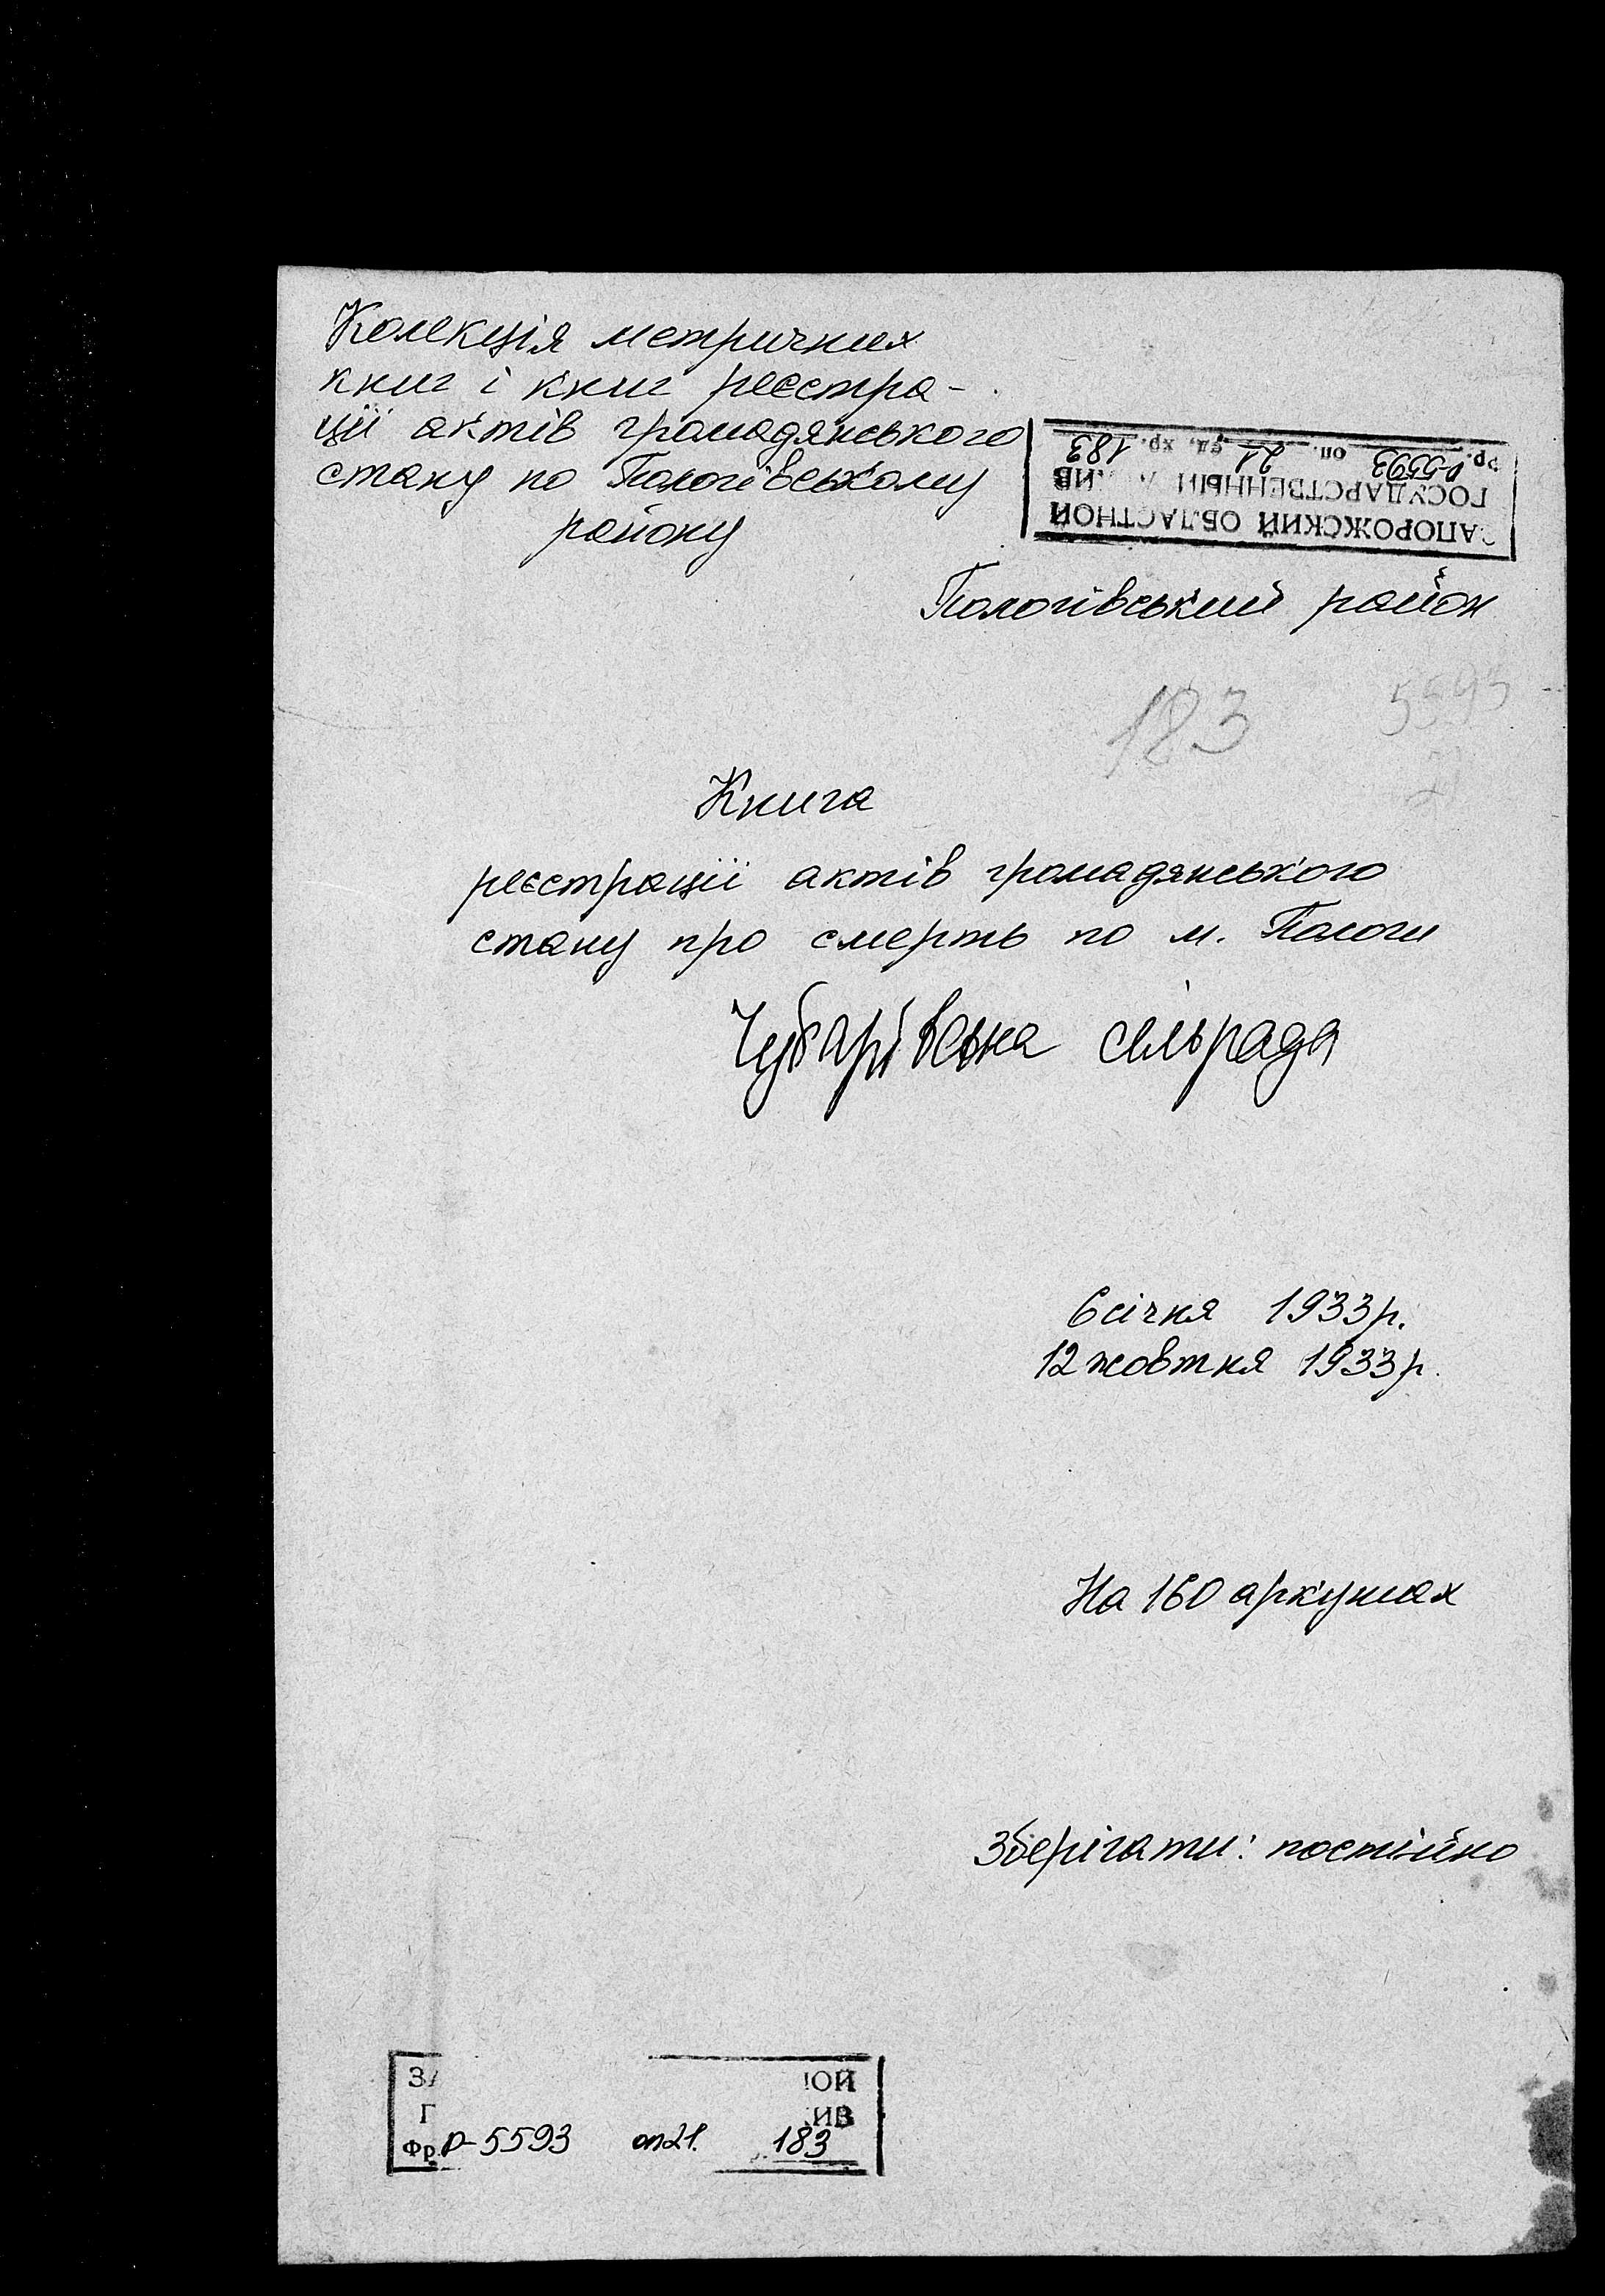 Колекція метричних
книг і книг реєстра-
ції актів громадянського
стану по Пологівському
району
ЗАПОРОЖСКИЙ ОБЛАСТНОЙ
ГОСУДАРСТВЕННЫЙ А..ИВ
Фр. Р-5593 оп. 21 ед. хр. 183
Пологівський район
183 5593
21
Книга
реєстрації актів громадянського
стану про смерть по м. Пологи
Чубарівська сільрада
6 січня 1933 р.
12 жовтня 1933 р.
На 160 аркушах
Зберігати: постійно
ЗА НОЙ
Г ИВ
Фр. Р-5593 оп 21. 183